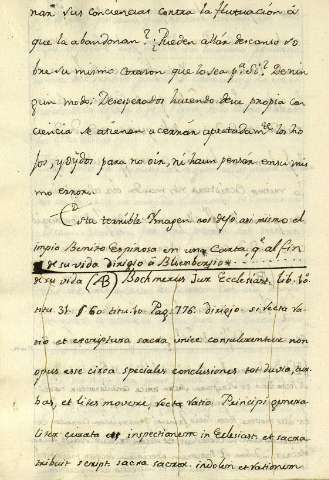 nan sus conciencias contra la flutuación à
que la abandonan? Pueden allár descanso so
bre su mismo corazon que lo sea pᵃ. sí? De nin
gun modo: Desesperados huiendo de su propia con
ciencia se atienen a cerrár apretadamᵗᵉ los ho
jos, y oýdos para no oir, ni haun pensar en su mis
mo error.
Esta terrible Imagen nos dejó asi mismo el
impio Benito Espinosa en una Carta qᵉ. al fin
de su vida dirigio à Blienbergio
de su vida (AB) Bochmerus Jux Ecclesiast. lib. 3º.
titu. 31 § 60. titu. 40 Pag. 776. dirigio si recta ra
tio et escriptura sacra, unice consulerentur non
opus esse circa speciales conclusiones tot duvia, tur
bas, et lites movere, recta ratio Principi genera
liter curata inspectionem in Eclesiast et sacra
tribuit script sacra sacror. indolem et rationem